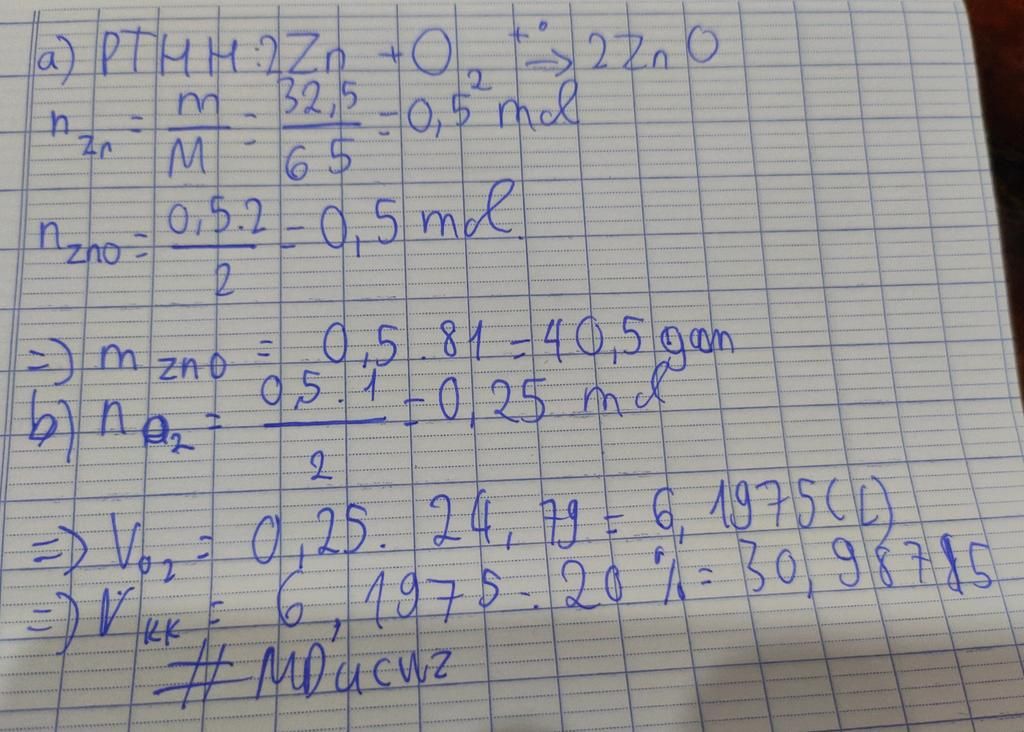 a) PTHH: 2Zn + O₂ t° → 2ZnO
n Zn = m/M = 32,5/65 = 0,5 mol
n ZnO = 0,5.2/2 = 0,5 mol
=) m ZnO = 0,5 . 81 = 40,5 gam
b) n O₂ = 0,5.1/2 = 0,25 mol
=) V O₂ = 0,25. 24,79 = 6,1975 (L)
=) V KK = 6,1975 : 20% = 30,9875
# MDucwz